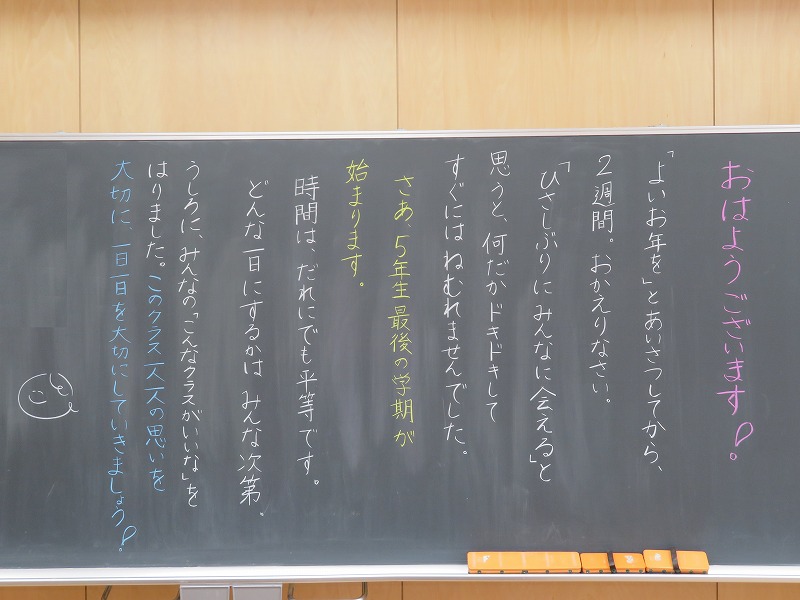 おはようございます!
「よいお年を」とあいさつしてから、
2週間。おかえりなさい。
「ひさしぶりにみんなに会える」と
思うと、何だかドキドキして
すぐにはねむれませんでした。
さあ、5年生最後の学期が
始まります。
時間は、だれにでも平等です。
どんな一日にするかは みんな次第。
うしろに、みんなの「こんなクラスがいいな」を
はりました。このクラス一人一人の思いを
大切に、一日一日を大切にしていきましょう!